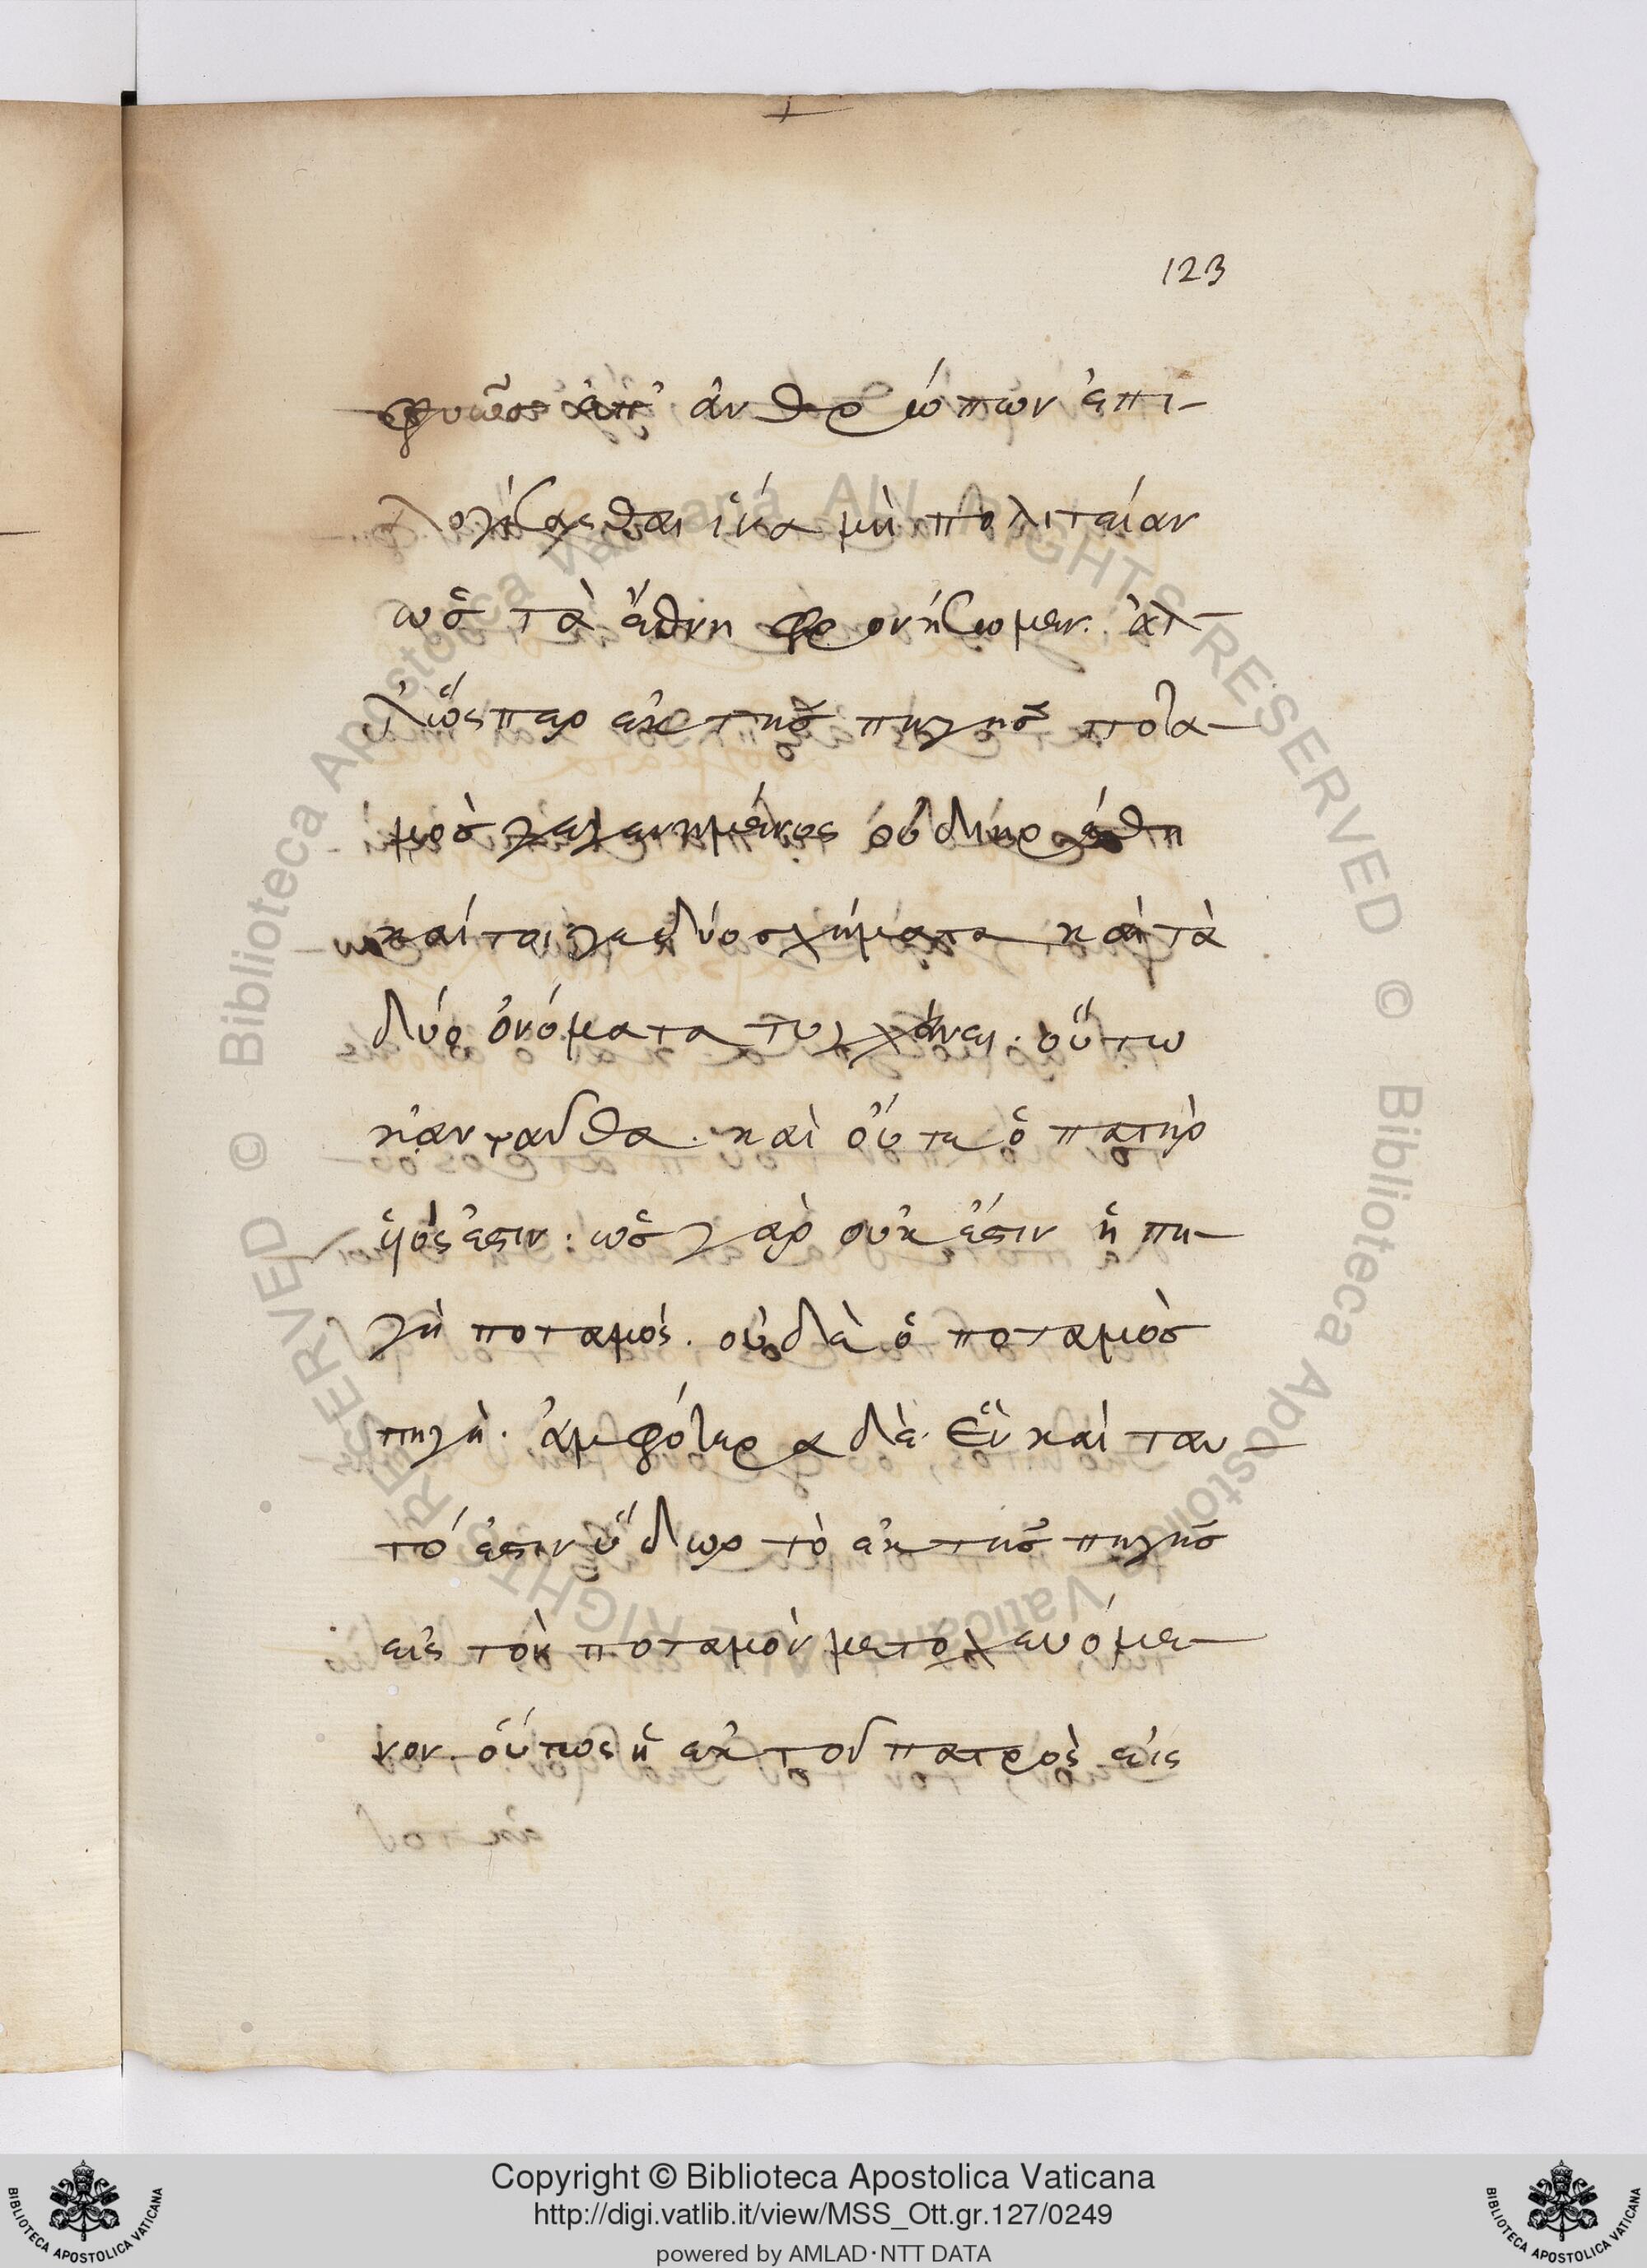 123
φυῶς ἐπ' ἀνθρώπων ἐπι-
λογίζεσθαι ἵνα μὴ πολιτείαν
ὡς τὰ ἔθνη φρονήζωμεν. ἀλ-
λ' ὥσπερ ἐκ τῆς πηγῆς ποτα-
μὸς γεγεννημένος οὐ διηρέθη
καίτοιγε δύο σχήματα καὶ τὰ
δύο ὀνόματα τυγχάνει. οὕτω
κἀνταῦθα. καὶ οὔτε ὁ πατὴρ
ὑιός ἐστιν: ὡς γὰρ οὐκ ἔστιν ἡ πη-
γὴ ποταμός. οὐδὲ ὁ ποταμὸς
πηγή. ἀμφότερα δὲ ἓν καὶ ταυ-
τό ἐστιν ὕδωρ τὸ ἐκ τῆς πηγῆς
εἰς τὸν ποταμὸν μετοχευόμε-
νον. οὕτως ἡ ἐκ τοῦ πατρὸς εἰς
Copyright © Biblioteca Apostolica Vaticana
http://digi.vatlib.it/view/MSS_Ott.gr.127/0249
powered by AMLAD·NTT DATA
BIBLIOTECA APOSTOLICA VATICANA
BIBLIOTECA APOSTOLICA VATICANA